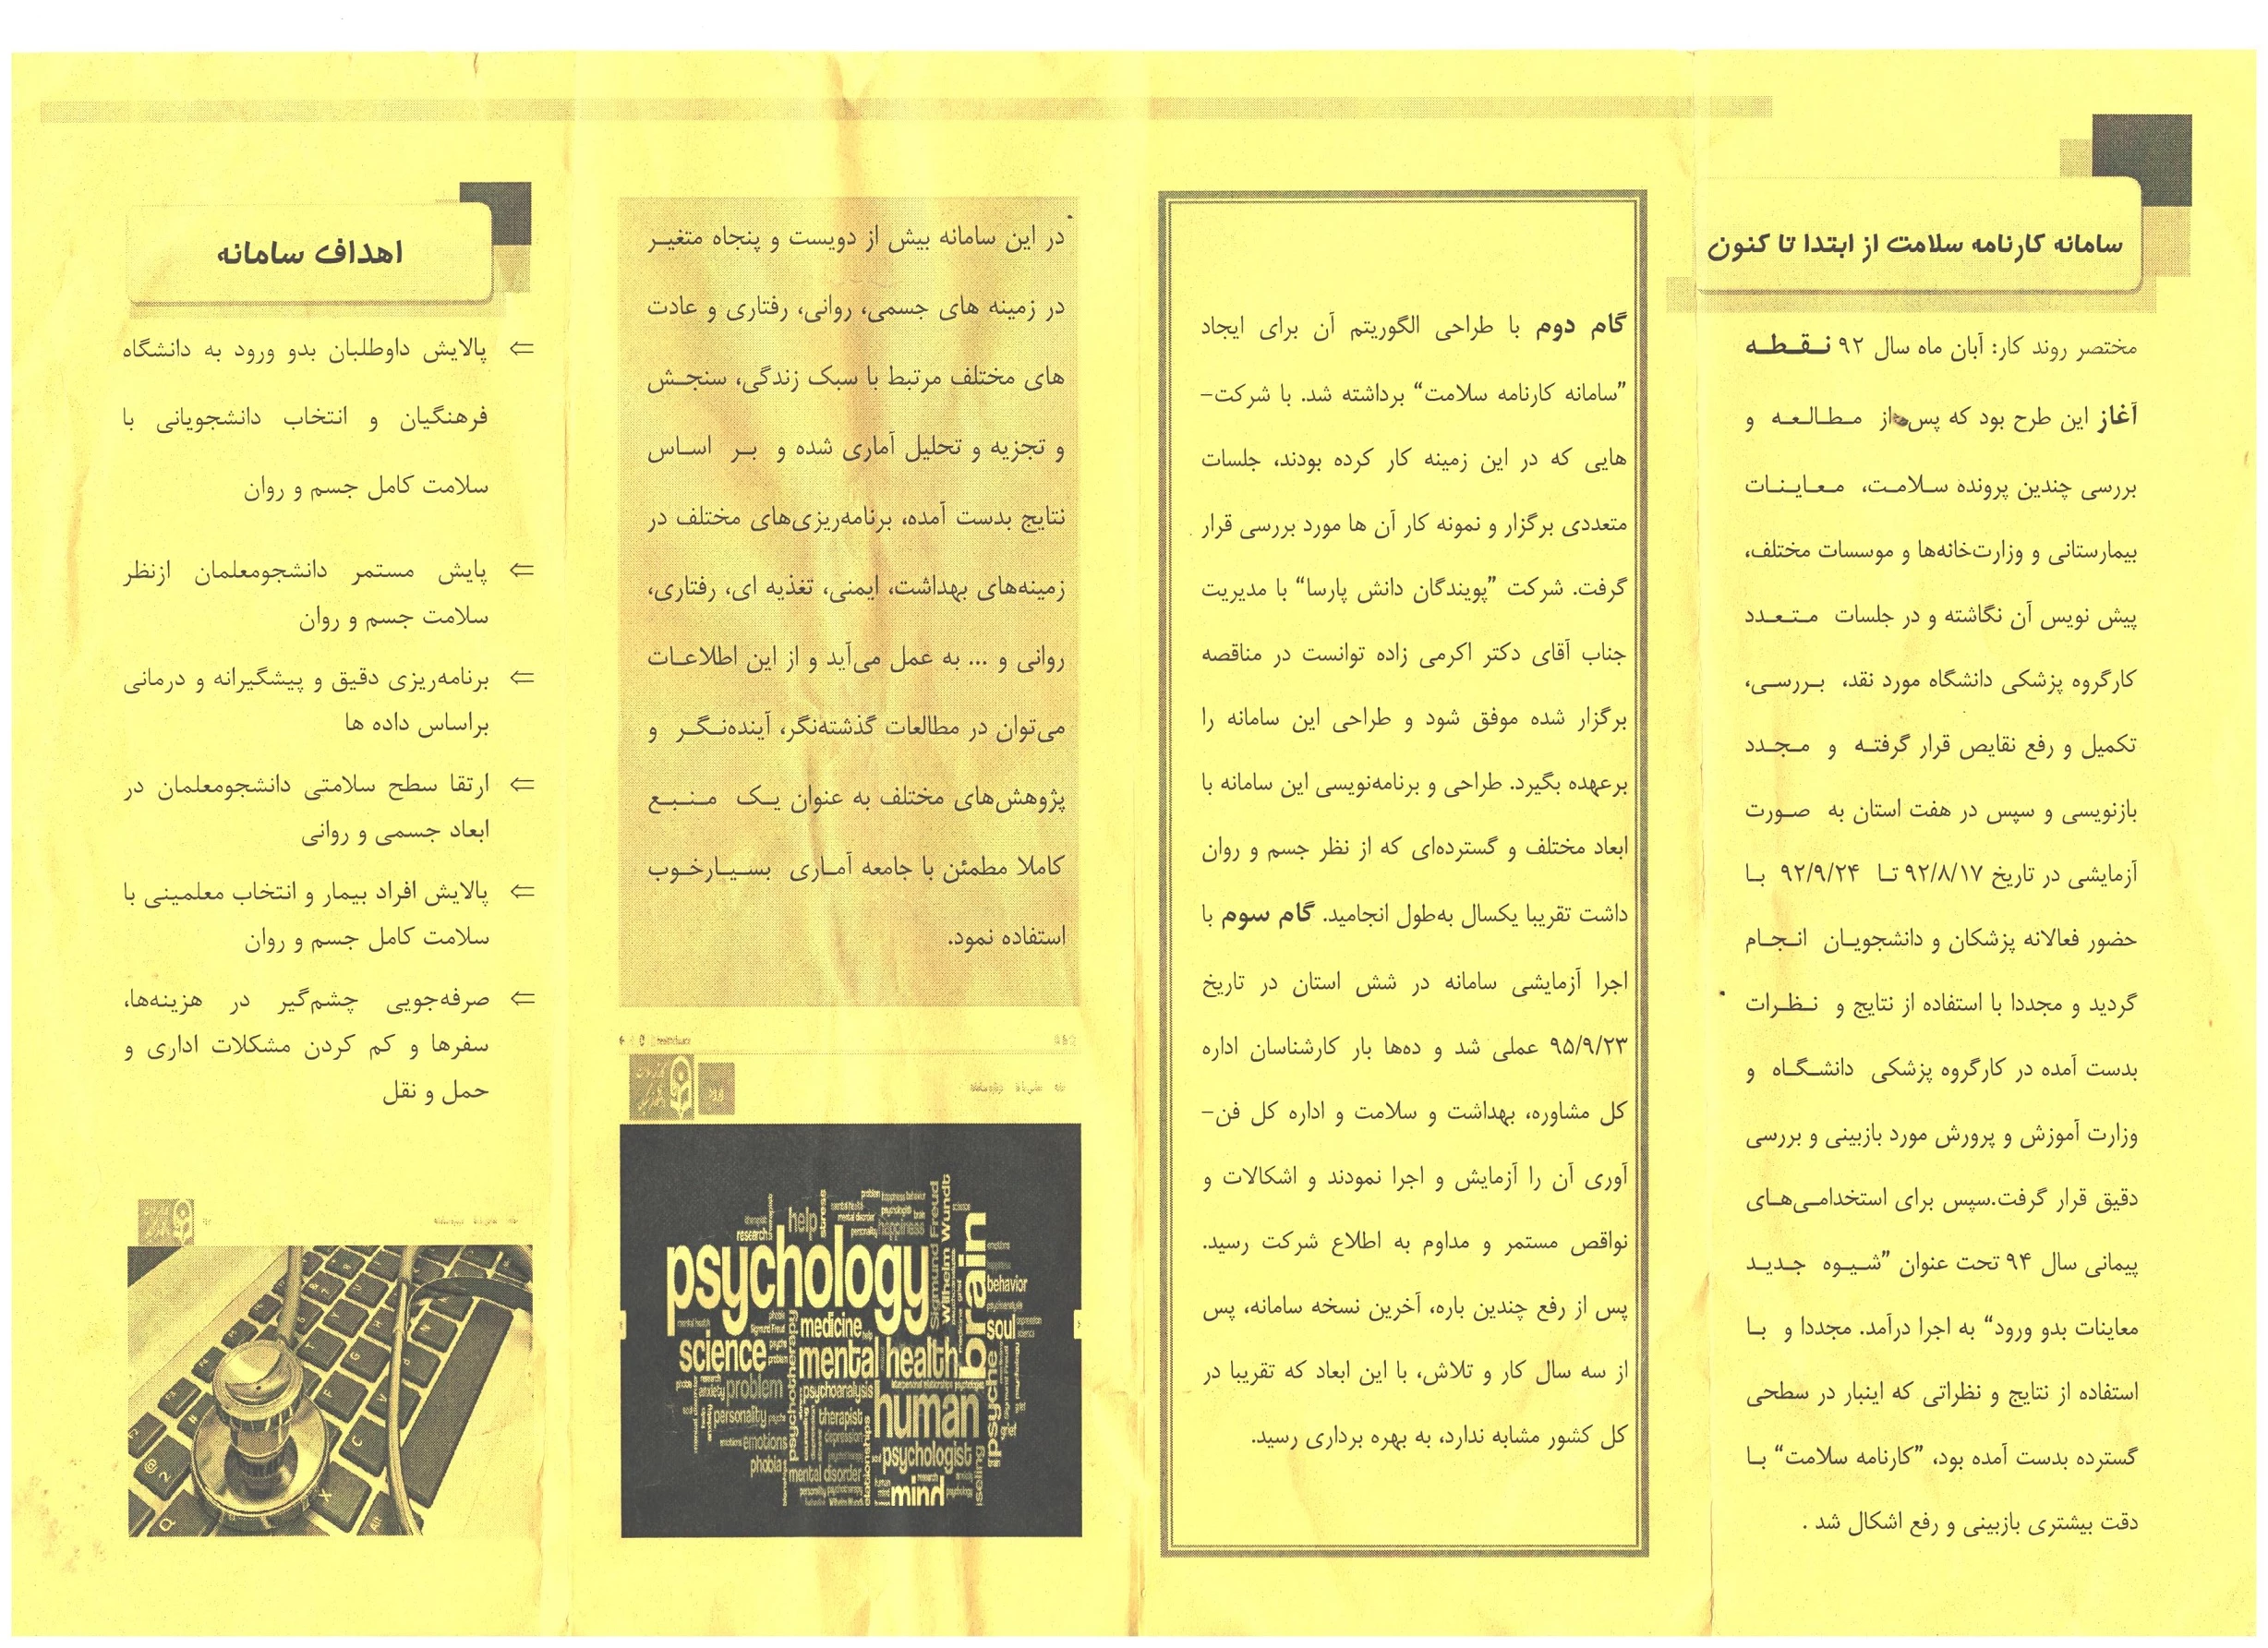 سامانه کارنامه سلامت از ابتدا تا کنون
مختصر روند کار: آبان ماه سال ۹۲ نـقـطـه
آغاز این طرح بود که پس از مـطـالـعـه و
بررسی چندین پرونده سـلامـت، مـعـایـنـات
بیمارستانی و وزارت‌خانه‌ها و موسسات مختلف،
پیش نویس آن نگاشته و در جلسات متـعـدد
کارگروه پزشکی دانشگاه مورد نقد، بـررسـی،
تکمیل و رفع نقایص قرار گرفتـه و مـجـدد
بازنویسی و سپس در هفت استان به صـورت
آزمایشی در تاریخ ۹۲/۸/۱۷ تـا ۹۲/۹/۲۴ بـا
حضور فعالانه پزشکان و دانشجویـان انـجـام
گردید و مجددا با استفاده از نتایج و نـظـرات
بدست آمده در کارگروه پزشکی دانشـگـاه و
وزارت آموزش و پرورش مورد بازبینی و بررسی
دقیق قرار گرفت.سپس برای استخدامـی‌هـای
پیمانی سال ۹۴ تحت عنوان ”شـیـوه جـدیـد
معاینات بدو ورود“ به اجرا درآمد. مجددا و بـا
استفاده از نتایج و نظراتی که اینبار در سطحی
گسترده بدست آمده بود، ”کارنامه سلامت“ بـا
دقت بیشتری بازبینی و رفع اشکال شد .
گام دوم با طراحی الگوریتم آن برای ایجاد
”سامانه کارنامه سلامت“ برداشته شد. با شرکت-
هایی که در این زمینه کار کرده بودند، جلسات
متعددی برگزار و نمونه کار آن ها مورد بررسی قرار
گرفت. شرکت ”پویندگان دانش پارسا“ با مدیریت
جناب آقای دکتر اکرمی زاده توانست در مناقصه
برگزار شده موفق شود و طراحی این سامانه را
برعهده بگیرد. طراحی و برنامه‌نویسی این سامانه با
ابعاد مختلف و گسترده‌ای که از نظر جسم و روان
داشت تقریبا یکسال به‌طول انجامید. گام سوم با
اجرا آزمایشی سامانه در شش استان در تاریخ
۹۵/۹/۲۳ عملی شد و ده‌ها بار کارشناسان اداره
کل مشاوره، بهداشت و سلامت و اداره کل فن-
آوری آن را آزمایش و اجرا نمودند و اشکالات و
نواقص مستمر و مداوم به اطلاع شرکت رسید.
پس از رفع چندین باره، آخرین نسخه سامانه، پس
از سه سال کار و تلاش، با این ابعاد که تقریبا در
کل کشور مشابه ندارد، به بهره برداری رسید.
در این سامانه بیش از دویست و پنجاه متغیـر
در زمینه های جسمی، روانی، رفتاری و عادت
های مختلف مرتبط با سبک زندگی، سنجـش
و تجزیه و تحلیل آماری شده و بـر اسـاس
نتایج بدست آمده، برنامه‌ریزی‌های مختلف در
زمینه‌های بهداشت، ایمنی، تغذیه ای، رفتاری،
روانی و ... به عمل می‌آید و از این اطلاعـات
می‌توان در مطالعات گذشته‌نگر، آینده‌نـگـر و
پژوهش‌های مختلف به عنوان یـک مـنـبـع
کاملا مطمئن با جامعه آمـاری بسـیـارخـوب
استفاده نمود.
help
stress
research
happiness
Sigmund Freud
Wilhelm Wundt
psychology
brain
behavior
medicine
soul
science
mental health
psychotherapy
anxiety
problem
psychoanalysis
human
psyche
personality
therapist
emotions
depression
grief
psychologist
phobia
mental disorder
mind
اهداف سامانه
⇐ پالایش داوطلبان بدو ورود به دانشگاه
فرهنگیان و انتخاب دانشجویانی با
سلامت کامل جسم و روان
⇐ پایش مستمر دانشجومعلمان ازنظر
سلامت جسم و روان
⇐ برنامه‌ریزی دقیق و پیشگیرانه و درمانی
براساس داده ها
⇐ ارتقا سطح سلامتی دانشجومعلمان در
ابعاد جسمی و روانی
⇐ پالایش افراد بیمار و انتخاب معلمینی با
سلامت کامل جسم و روان
⇐ صرفه‌جویی چشم‌گیر در هزینه‌ها،
سفرها و کم کردن مشکلات اداری و
حمل و نقل